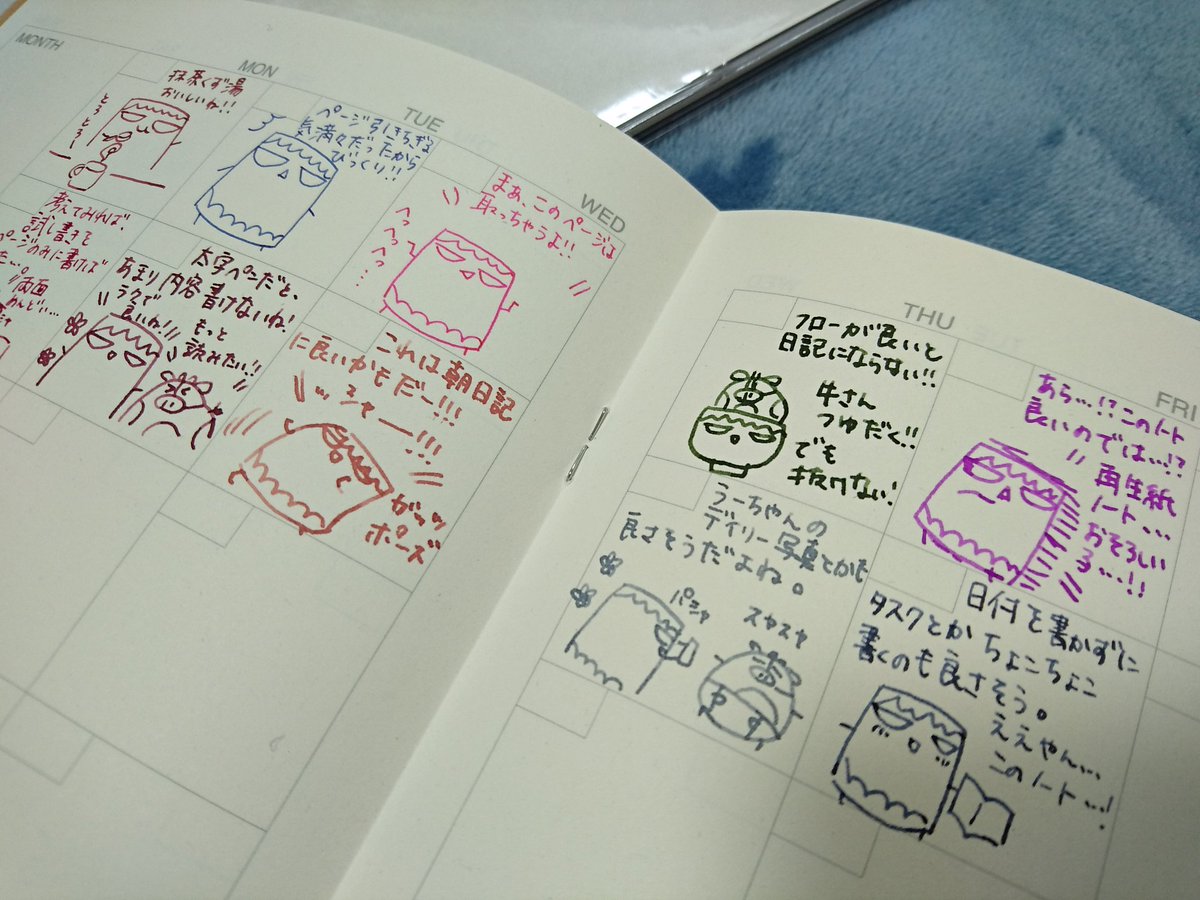 MONTH
MON
TUE
WED
THU
FRI
抹茶くず湯
おいしいね!!
とろとろ
ページ引きちぎる
気満々だったから
びっくり!!
まぁ、このページは
取っちゃうよ!!
へっへっへっ…
考えてみれば、
試し書きを
ページのみに書けば
両面
めんどい…
太字ペンだと、
あまり内容書けないね!
ラクで
良いね!
もっと
読みたい!!
これは朝日記
に良いかもだー!!!
ッシャー!!!
ガッツ
ポーズ
フローが良いと
日記にならない!!
牛さん
つゆだく!!
でも
抜けない!
あら…!?このノート
良いのでは…!?
再生紙
ノート…
おそろしい
子…!!
うーちゃんの
デイリー写真とかも
良さそうだよね。
パシャ
スヤスヤ
日付を書かずに
タスクとかちょこちょこ
書くのも良さそう。
ええやん…
このノート…!